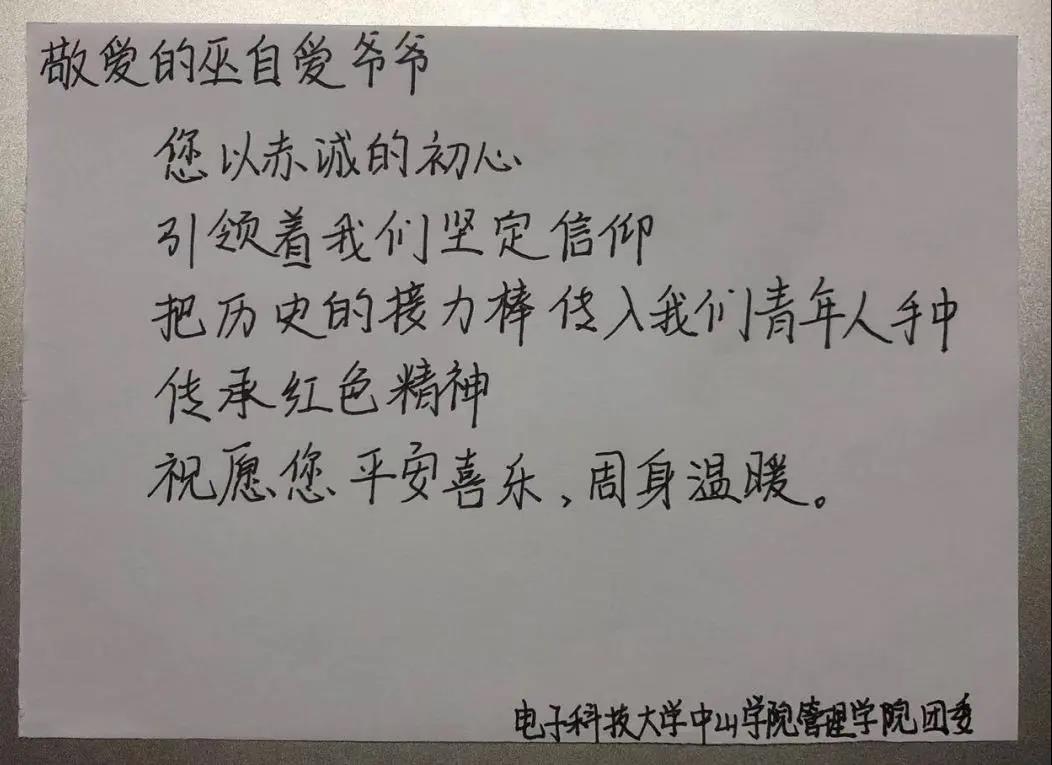 敬爱的巫自爱爷爷
您以赤诚的初心
引领着我们坚定信仰
把历史的接力棒传入我们青年人手中
传承红色精神
祝愿您平安喜乐，周身温暖。
电子科技大学中山学院管理学院团委